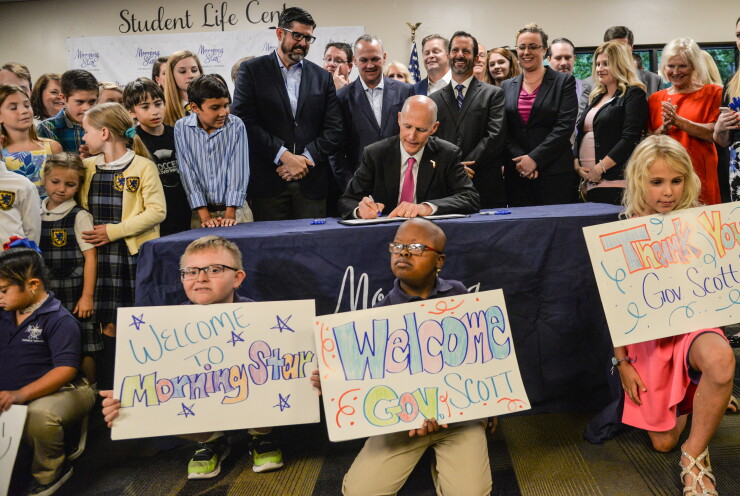 Student Life Cen
Morning
Star
Morning
Star
WELCOME
TO
MORNING STAR
WELCOME
GOV. SCOTT
THANK YOU
GOV. SCOTT!
Morning